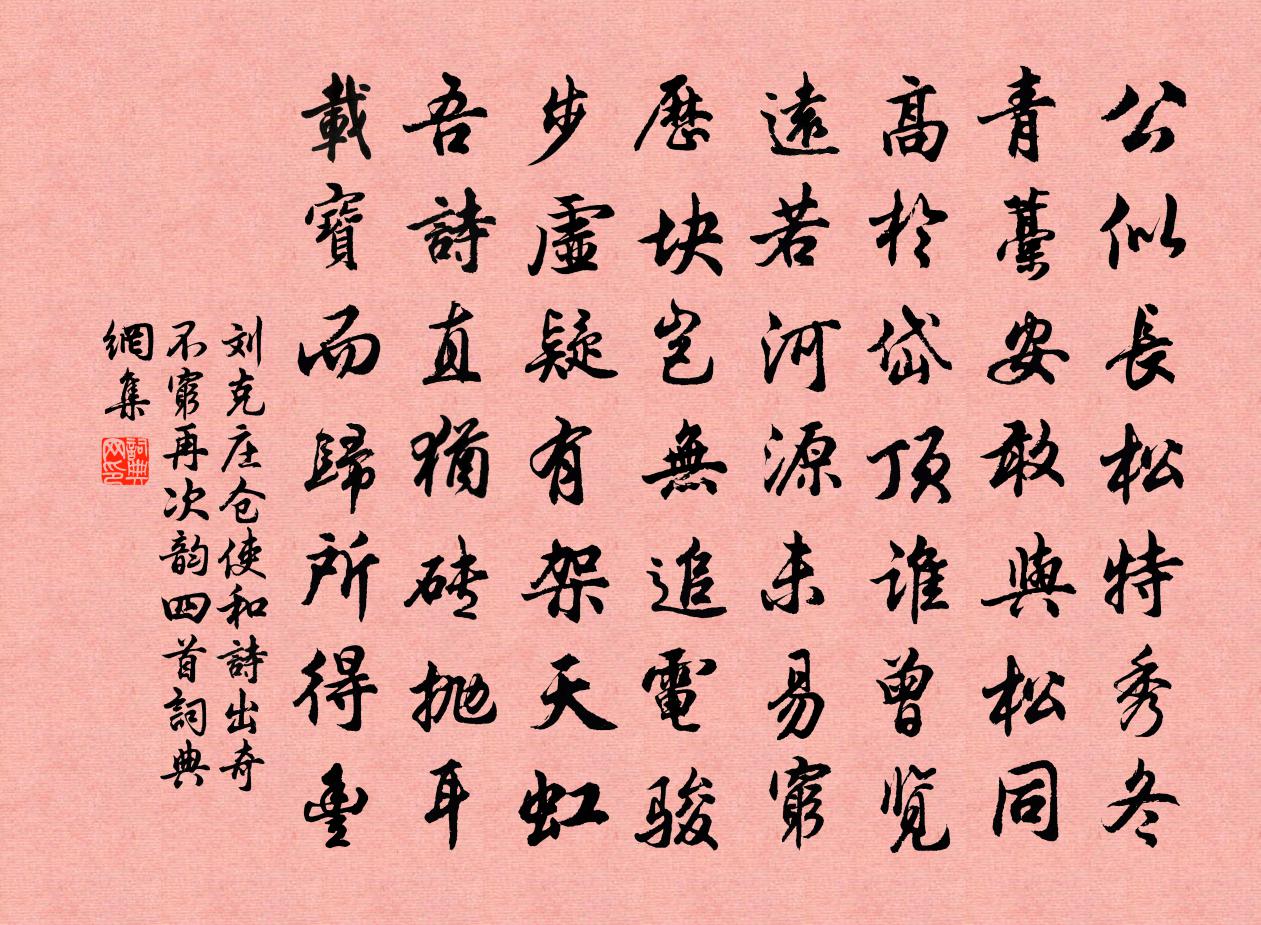 公似長松特秀冬
青安敢與松同
高於岱顶谁曾览
遠若河源未易窮
歷块豈無追電骏
步虛疑有架天虹
吾詩直猶砖抛耳
載寶而歸所得豐
刘克庄仓使和詩出奇
不窮再次韵四首詞典
網集
詞典
网印